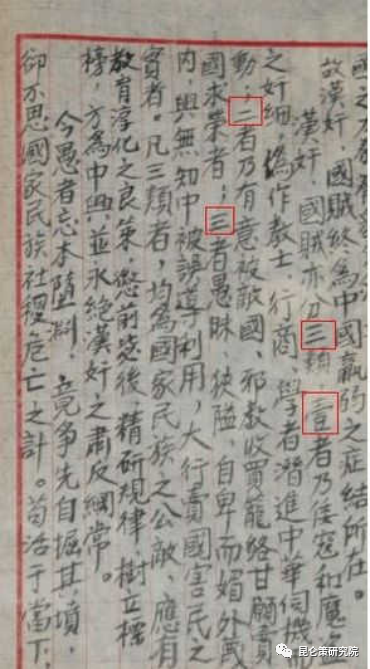 國之
故漢奸，國賊終為中國羸弱之症結所在。
漢奸，國賊亦分三類：壹者乃倭寇和魔
之奸細，偽作教士、行商、學者潛進中華伺機
動；二者乃有意被敵國、邪教收買籠絡甘願賣
國求榮者；三者愚昧、狹隘、自卑而媚外或
內，與無知中被誤導利用，大行賣國害民之
實者。凡三類者，均為國家民族之公敵，應有
教育淳化之良策，懲前毖後，精研規律，樹立標
榜，方為中興，並永絕漢奸之肅反綱常。
今愚者忘本隨，竟爭先自掘其墳，
卻不思國家民族社稷危亡之計。苟活于當下，
昆仑策研究院